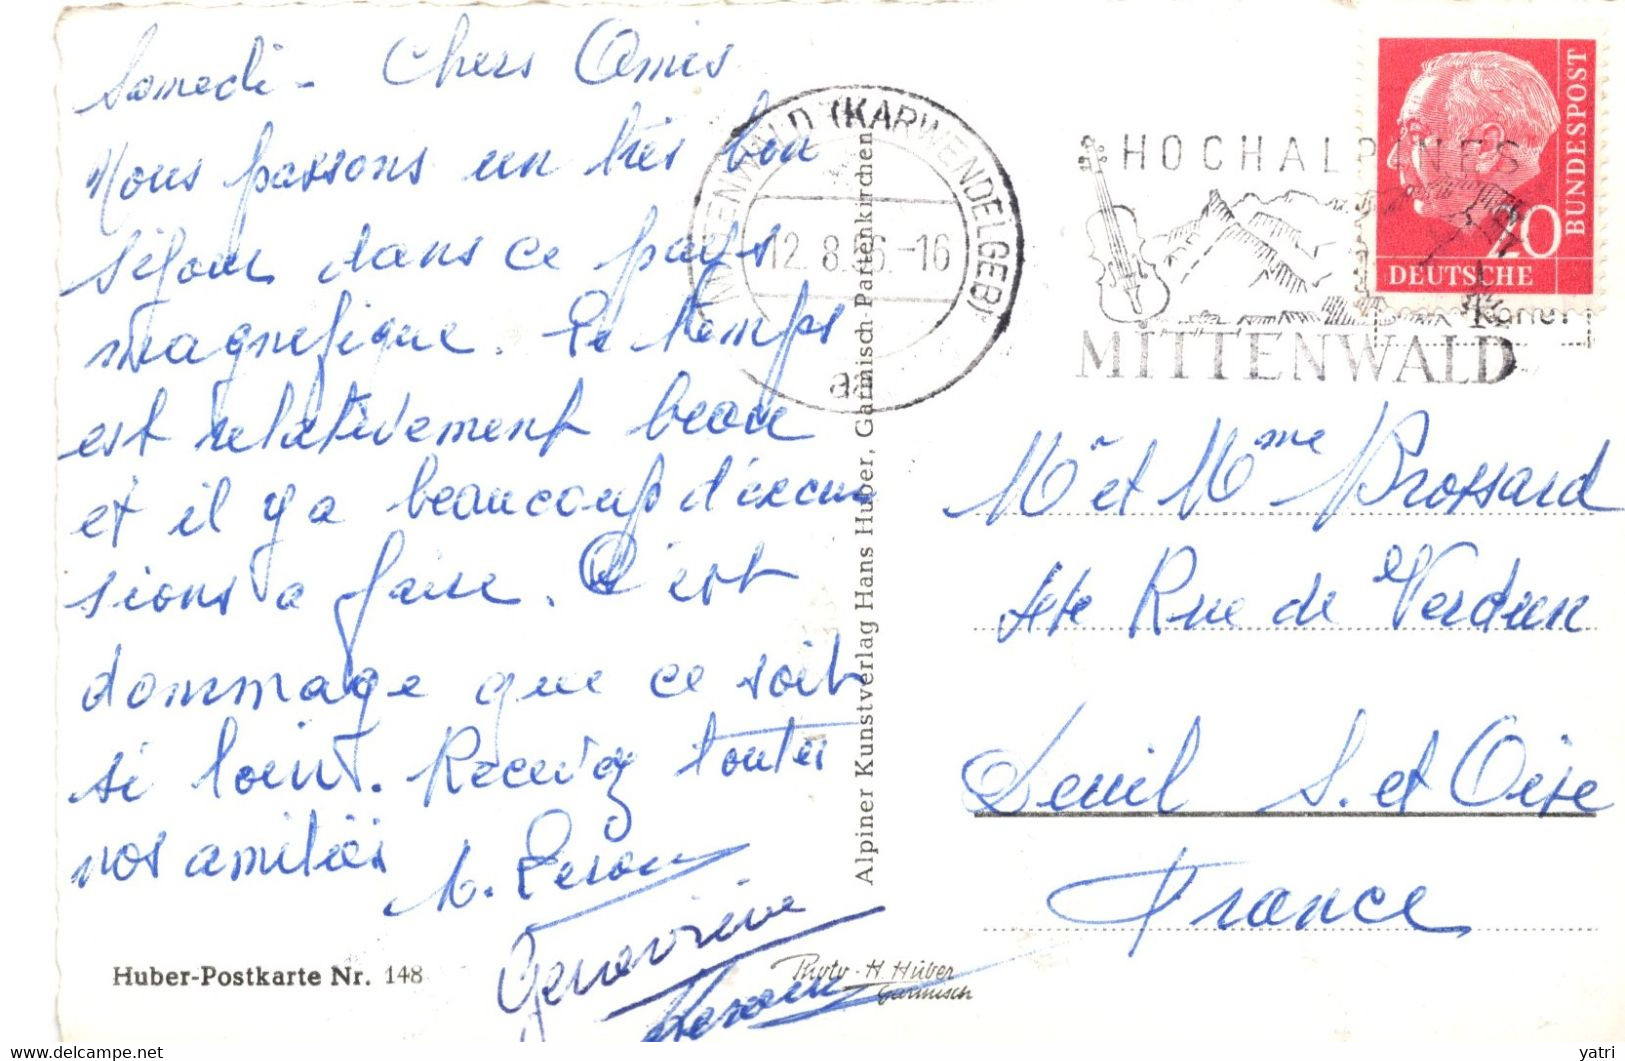 Samedi - Chers Amis
Nous passons un très bon
séjour dans ce pays
magnefique. Le temps
est relativement beau
et il y a beaucoup d'excur
sions a faire. C'est
dommage que ce soit
si loin. Recevez toutes
nos amitiés
Geneviève
Huber-Postkarte Nr. 148
Photo - H. Huber
Garmisch
Alpiner Kunstverlag Hans Huber, Garmisch-Partenkirchen
MITTENWALD (KARWENDELGEB)
12.8.56.-16
a
HOCHALPINES
MITTENWALD
20
BUNDESPOST
DEUTSCHE
Mr et Mme Brossard
Rue de Verdun
Deuil S. et Oise
France
delcampe.net
yatri